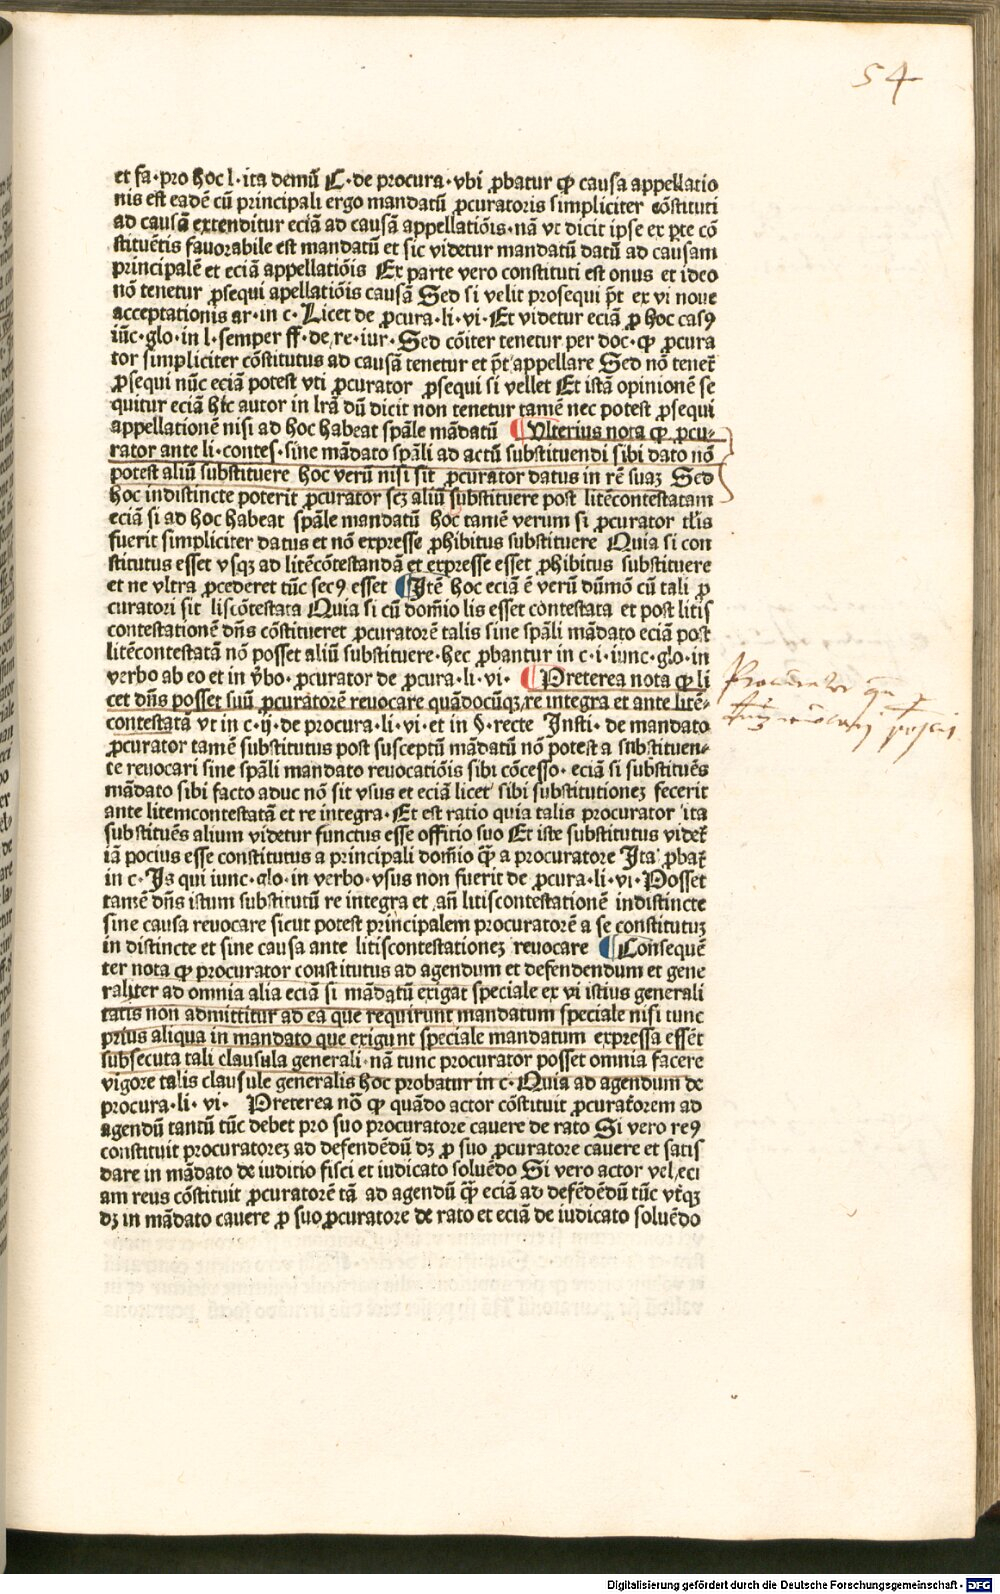 54
et fa·pro hoc l·ita demū C·de procura·vbi ꝓbatur ꝙ causa appellatio
nis est eadē cū principali ergo mandatū ꝓcuratoris simpliciter cōstituti
ad causā extenditur eciā ad causā appellatiōis·nā vt dicit ipse ex ꝑte cō
stituētis fauorabile est mandatū et sic videtur mandatū datū ad causam
principalē et eciā appellatiōis Ex parte vero constituti est onus et ideo
nō tenetur ꝓsequi apellatiōis causā Sed si velit prosequi pōt ex vi noue
acceptationis ar·in c·Licet de ꝓcura·li·vi·Et videtur eciā ꝑ hoc casꝰ
iūc·glo·in l·semper ff·de·re·iur·Sed cōiter tenetur per doc·ꝙ ꝓcura
tor simpliciter cōstitutus ad causā tenetur et pōt appellare Sed nō tenet̄
ꝓsequi nūc eciā potest vti ꝓcurator ꝓsequi si vellet Et istā opinionē se
quitur eciā hic autor in lrā dū dicit non tenetur tamē nec potest ꝓsequi
appellationē nisi ad hoc habeat spālē mādatū ¶Vlterius nota ꝙ ꝓcu⸗
rator ante li·contes·sine mādato spāli ad actū substituendi sibi dato nō
potest aliū substituere hoc verū nisi sit ꝓcurator datus in rē suaꝫ Sed
hoc indistincte poterit ꝓcurator scꝫ aliū substituere post litēcontestatam
eciā si ad hoc habeat spālē mandatū hoc tamē verum si ꝓcurator tl̄is
fuerit simpliciter datus et nō expresse ꝓhibitus substituere Quia si con
stitutus esset vsqꝫ ad litēcōtestandā et expresse esset ꝓhibitus substituere
et ne vltra ꝓcederet tūc secꝰ esset ¶Itē hoc eciā ē verū dūmō cū tali ꝓ
curatori sit liscōtestata Quia si cū domīo lis esset contestata et post litis
contestationē dn̄s cōstitueret ꝓcuratorē talis sine spāli mādato eciā post
litēcontestatā nō posset aliū substituere·hec ꝓbantur in c·i·iunc·glo·in
verbo ab eo et in v̄bo·ꝓcurator de ꝓcura·li·vi· ¶Preterea nota ꝙ li
cet dn̄s posset suū ꝓcuratorē reuocare quādocūqꝫ re integra et ante litē⸗
contestatā vt in c·ij·de procura·li·vi·et in §·recte Insti·de mandato
ꝓcurator tamē substitutus post susceptū mādatū nō potest a substituen⸗
te reuocari sine spāli mandato reuocatiōis sibi cōcesso·eciā si substituēs
mādato sibi facto aduc nō sit vsus et eciā licet sibi substitutioneꝫ fecerit
ante litemcontestatā et re integra·Et est ratio quia talis procurator ita
substituēs alium videtur functus esse offitio suo Et iste substitutus videt̄
iā pocius esse constitutus a principali domīo q̄ꝫ a procuratore Ita ꝓbat̄
in c·Is qui iunc·glo·in verbo·vsus non fuerit de ꝓcura·li·vi·Posset
tamē dn̄s istum substitutū re integra et an̄ litiscontestationē indistincte
sine causa reuocare sicut potest principalem procuratorē a se constitutuꝫ
in distincte et sine causa ante litiscontestationeꝫ reuocare ¶Consequē
ter nota ꝙ procurator constitutus ad agendum et defendendum et gene
raliter ad omnia alia eciā si mādatū exigat speciale ex vi istius generali
tatis non admittitur ad ea que requirunt mandatum speciale nisi tunc
prius aliqua in mandato que exigunt speciale mandatum expressa essēt
subsecuta tali clausula generali·nā tunc procurator posset omnia facere
vigore talis clausule generalis hoc probatur in c·Quia ad agendum de
procura·li·vi· Preterea nō ꝙ quādo actor cōstituit ꝓcuratorem ad
agendū tantū tūc debet pro suo procuratore cauere de rato Si vero reꝰ
constituit procuratoreꝫ ad defendēdū dꝫ ꝑ suo ꝓcuratore cauere et satis
dare in mādato de iuditio sisti et iudicato soluēdo Si vero actor vel eci
am reus cōstituit ꝓcuratorē tā ad agendū q̄ꝫ eciā ad defēdēdū tūc vt̄qꝫ
dꝫ in mādato cauere ꝑ suo ꝓcuratore de rato et eciā de iudicato soluēdo
Procurator
Digitalisierung gefördert durch die Deutsche Forschungsgemeinschaft · DFG